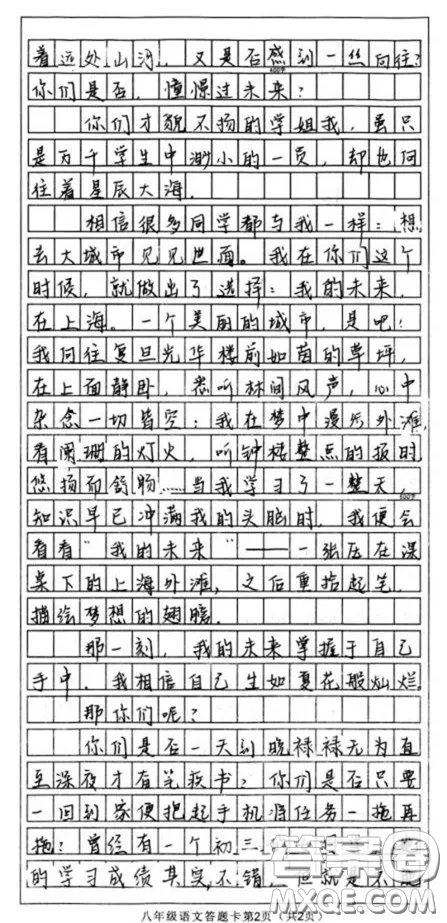 着远处山河，又是否感到一丝向往？
600字
你们是否，憧憬过未来？
你们才貌不扬的学姐我，虽只
是万千学生中渺小的一员，却也向
往着星辰大海。
相信很多同学都与我一样：想
去大城市见见世面。我在你们这个
时候，就做出了选择：我的未来，
在上海。一个美丽的城市，是吧！
我向往复旦光华楼前如茵的草坪，
在上面静卧，悉听林间风声，心中
杂念一切皆空；我在梦中漫步外滩，
看阑珊的灯火，听钟楼整点的报时，
悠扬而舒畅……当我学习了一整天，
800字
知识早已冲满我的头脑时，我便会
看看“我的未来”——一张压在深
桌下的上海外滩，之后重拾起笔，
描绘梦想的翅膀。
那一刻，我的未来掌握于自己
手中，我相信自己生如夏花般灿烂。
那你们呢？
你们是否一天到晚禄禄无为直
至深夜才有笔疾书？你们是否只要
一回到家便把起手机将任务一拖再
拖？曾经有一个初三
的学习成绩其实不错，但就是不
八年级语文答题卡第2页（共2页）
答案圈